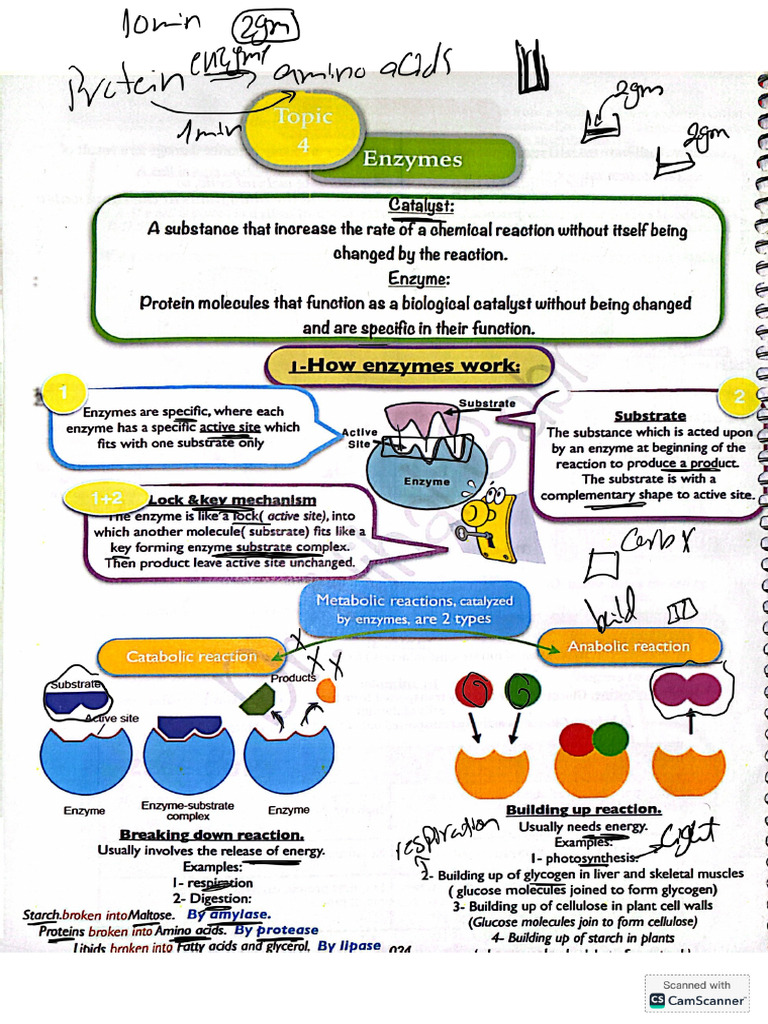 10min 2gm
Protein enzyme amino acids
1min
2gm
2gm
Topic
4
Enzymes
Catalyst:
A substance that increase the rate of a chemical reaction without itself being
changed by the reaction.
Enzyme:
Protein molecules that function as a biological catalyst without being changed
and are specific in their function.
1-How enzymes work:
1
Enzymes are specific, where each
enzyme has a specific active site which
fits with one substrate only
Substrate
Active
Site
Enzyme
2
Substrate
The substance which is acted upon
by an enzyme at beginning of the
reaction to produce a product.
The substrate is with a
complementary shape to active site.
1+2
Lock &key mechanism
The enzyme is like a lock( active site), into
which another molecule( substrate) fits like a
key forming enzyme substrate complex.
Then product leave active site unchanged.
build
Metabolic reactions, catalyzed
by enzymes, are 2 types
Catabolic reaction
Anabolic reaction
Substrate
Products
Active site
Enzyme
Enzyme-substrate
complex
Enzyme
Breaking down reaction.
Usually involves the release of energy.
Examples:
1- respiration
2- Digestion:
Starch.broken intoMaltose. By amylase.
Proteins broken intoAmino acids. By protease
Lipids broken into Fatty acids and glycerol. By lipase
Building up reaction.
Usually needs energy.
Examples:
1- photosynthesis.
Light
respiration
2- Building up of glycogen in liver and skeletal muscles
( glucose molecules joined to form glycogen)
3- Building up of cellulose in plant cell walls
(Glucose molecules join to form cellulose)
4- Building up of starch in plants
Scanned with
CS CamScanner